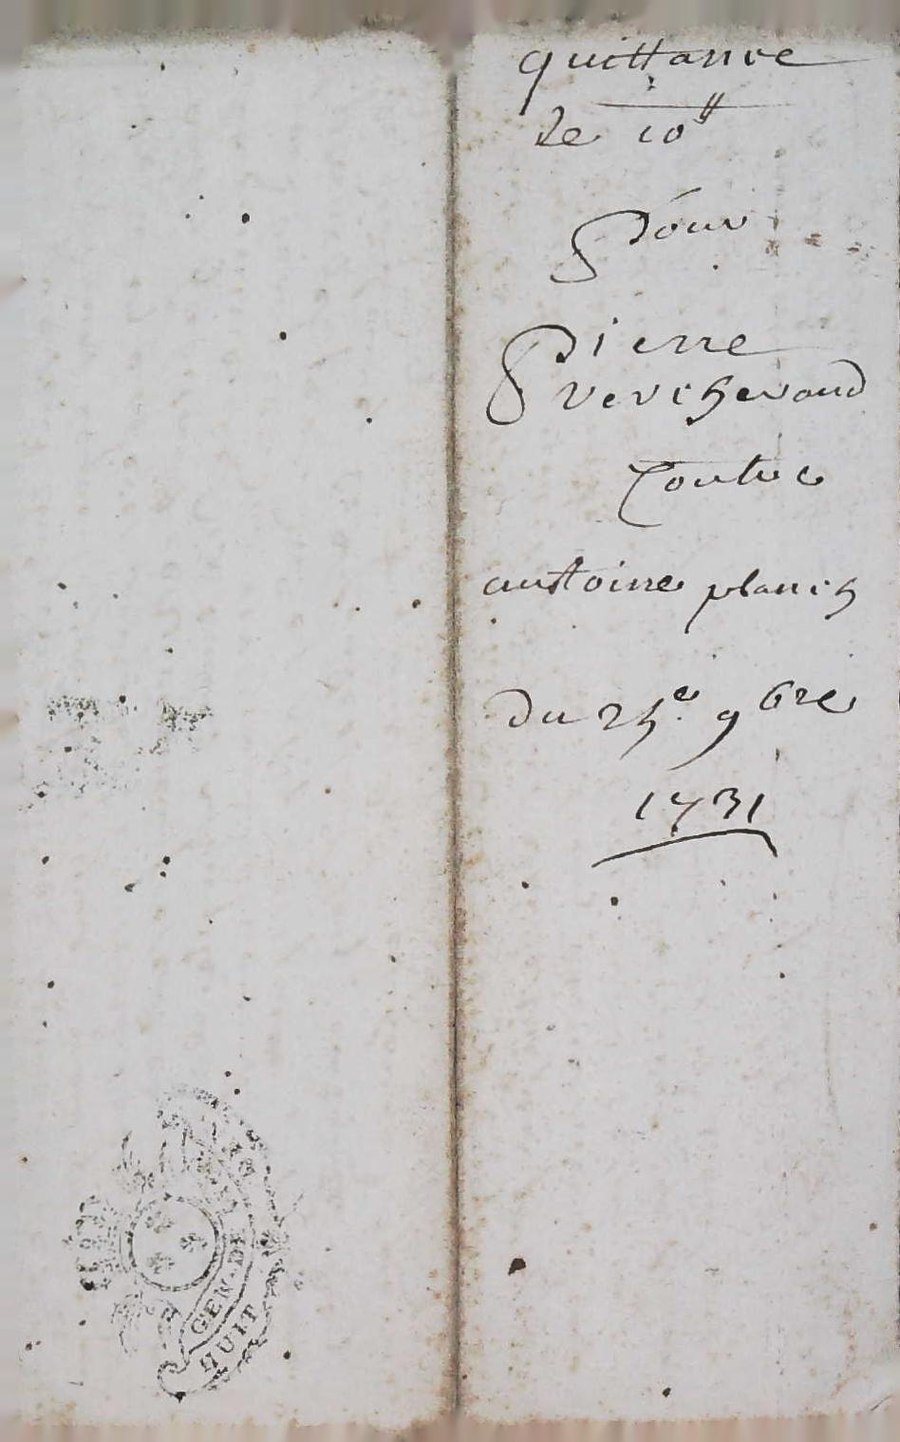 quittance
de 10ᵗᵗ
pour
pierre
vercherand
Contre
antoine planch
du 25e. 9bre
1731
GEN. DE
HUIT